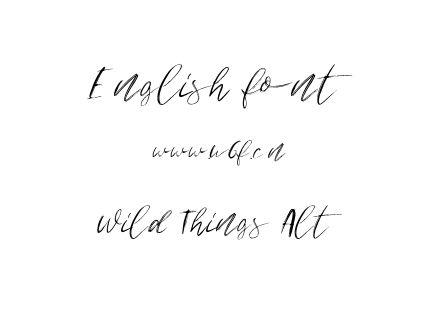 English font
www.u6f.cn
Wild Things Alt